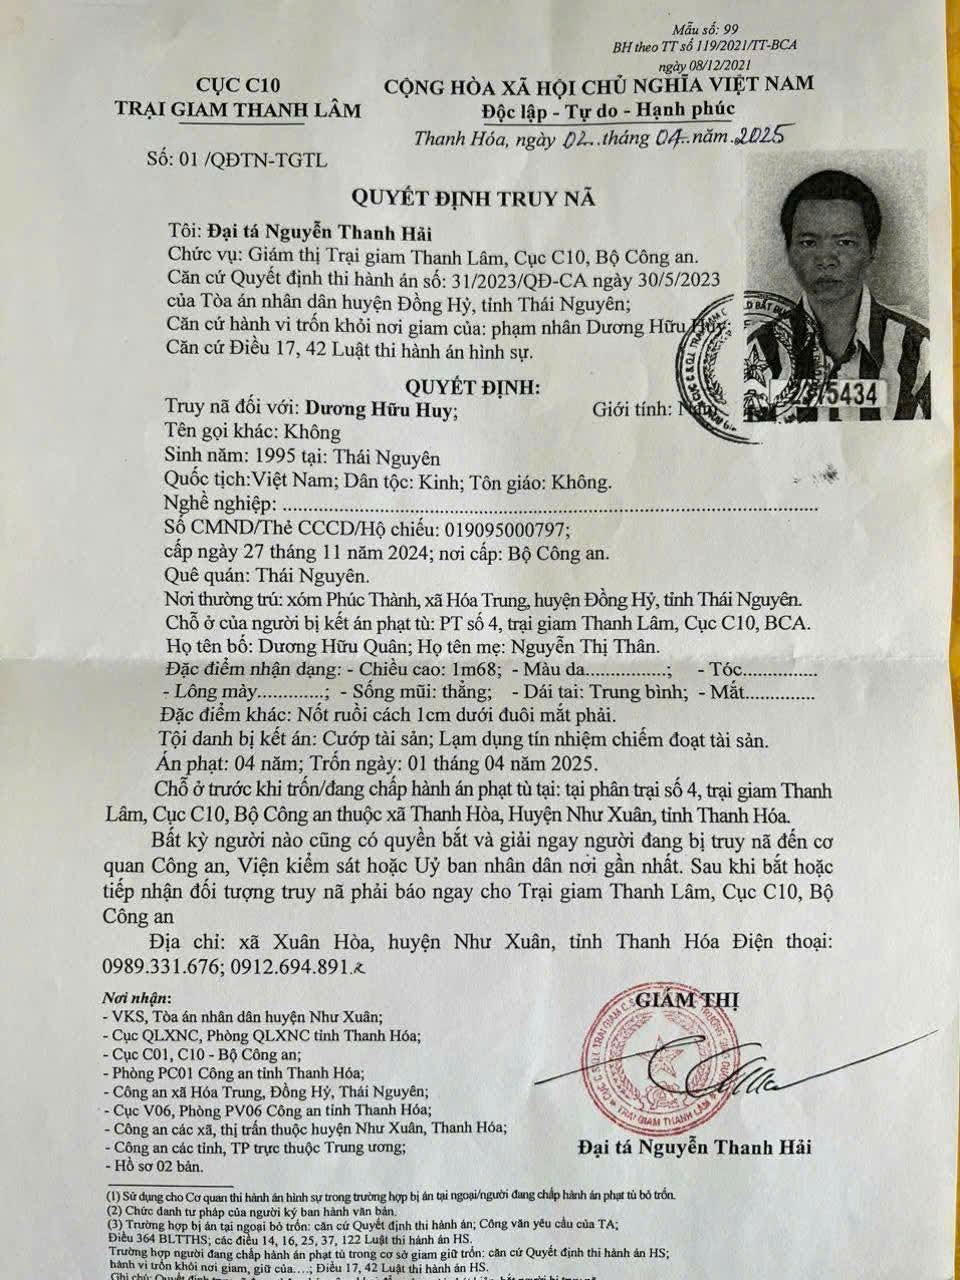 Mẫu số: 99
BH theo TT số 119/2021/TT-BCA
ngày 08/12/2021
CỤC C10
TRẠI GIAM THANH LÂM
CỘNG HÒA XÃ HỘI CHỦ NGHĨA VIỆT NAM
Độc lập - Tự do - Hạnh phúc
Thanh Hóa, ngày 02..tháng 04..năm..2025
Số: 01 /QĐTN-TGTL
QUYẾT ĐỊNH TRUY NÃ
Tôi: Đại tá Nguyễn Thanh Hải
Chức vụ: Giám thị Trại giam Thanh Lâm, Cục C10, Bộ Công an.
Căn cứ Quyết định thi hành án số: 31/2023/QĐ-CA ngày 30/5/2023
của Tòa án nhân dân huyện Đồng Hỷ, tỉnh Thái Nguyên;
Căn cứ hành vi trốn khỏi nơi giam của: phạm nhân Dương Hữu Huy;
Căn cứ Điều 17, 42 Luật thi hành án hình sự.
5434
QUYẾT ĐỊNH:
Truy nã đối với: Dương Hữu Huy; Giới tính:
Tên gọi khác: Không
Sinh năm: 1995 tại: Thái Nguyên
Quốc tịch:Việt Nam; Dân tộc: Kinh; Tôn giáo: Không.
Nghề nghiệp: ................................................................
Số CMND/Thẻ CCCD/Hộ chiếu: 019095000797;
cấp ngày 27 tháng 11 năm 2024; nơi cấp: Bộ Công an.
Quê quán: Thái Nguyên.
Nơi thường trú: xóm Phúc Thành, xã Hóa Trung, huyện Đồng Hỷ, tỉnh Thái Nguyên.
Chỗ ở của người bị kết án phạt tù: PT số 4, trại giam Thanh Lâm, Cục C10, BCA.
Họ tên bố: Dương Hữu Quân; Họ tên mẹ: Nguyễn Thị Thân.
Đặc điểm nhận dạng: - Chiều cao: 1m68; - Màu da..............; - Tóc...............
- Lông mày............; - Sống mũi: thẳng; - Dái tai: Trung bình; - Mắt.............
Đặc điểm khác: Nốt ruồi cách 1cm dưới đuôi mắt phải.
Tội danh bị kết án: Cướp tài sản; Lạm dụng tín nhiệm chiếm đoạt tài sản.
Án phạt: 04 năm; Trốn ngày: 01 tháng 04 năm 2025.
Chỗ ở trước khi trốn/đang chấp hành án phạt tù tại: tại phân trại số 4, trại giam Thanh
Lâm, Cục C10, Bộ Công an thuộc xã Thanh Hòa, Huyện Như Xuân, tỉnh Thanh Hóa.
Bất kỳ người nào cũng có quyền bắt và giải ngay người đang bị truy nã đến cơ
quan Công an, Viện kiểm sát hoặc Uỷ ban nhân dân nơi gần nhất. Sau khi bắt hoặc
tiếp nhận đối tượng truy nã phải báo ngay cho Trại giam Thanh Lâm, Cục C10, Bộ
Công an
Địa chỉ: xã Xuân Hòa, huyện Như Xuân, tỉnh Thanh Hóa Điện thoại:
0989.331.676; 0912.694.891.
Nơi nhận:
- VKS, Tòa án nhân dân huyện Như Xuân;
- Cục QLXNC, Phòng QLXNC tỉnh Thanh Hóa;
- Cục C01, C10 - Bộ Công an;
- Phòng PC01 Công an tỉnh Thanh Hóa;
- Công an xã Hóa Trung, Đồng Hỷ, Thái Nguyên;
- Cục V06, Phòng PV06 Công an tỉnh Thanh Hóa;
- Công an các xã, thị trấn thuộc huyện Như Xuân, Thanh Hóa;
- Công an các tỉnh, TP trực thuộc Trung ương;
- Hồ sơ 02 bản.
GIÁM THỊ
TRẠI GIAM THANH LÂM
Đại tá Nguyễn Thanh Hải
(1) Sử dụng cho Cơ quan thi hành án hình sự trong trường hợp bị án tại ngoại/người đang chấp hành án phạt tù bỏ trốn.
(2) Chức danh tư pháp của người ký ban hành văn bản.
(3) Trường hợp bị án tại ngoại bỏ trốn: căn cứ Quyết định thi hành án; Công văn yêu cầu của TA;
Điều 364 BLTTHS; các điều 14, 16, 25, 37, 122 Luật thi hành án HS.
Trường hợp người đang chấp hành án phạt tù trong cơ sở giam giữ trốn: căn cứ Quyết định thi hành án HS;
hành vi trốn khỏi nơi giam, giữ của....; Điều 17, 42 Luật thi hành án HS.